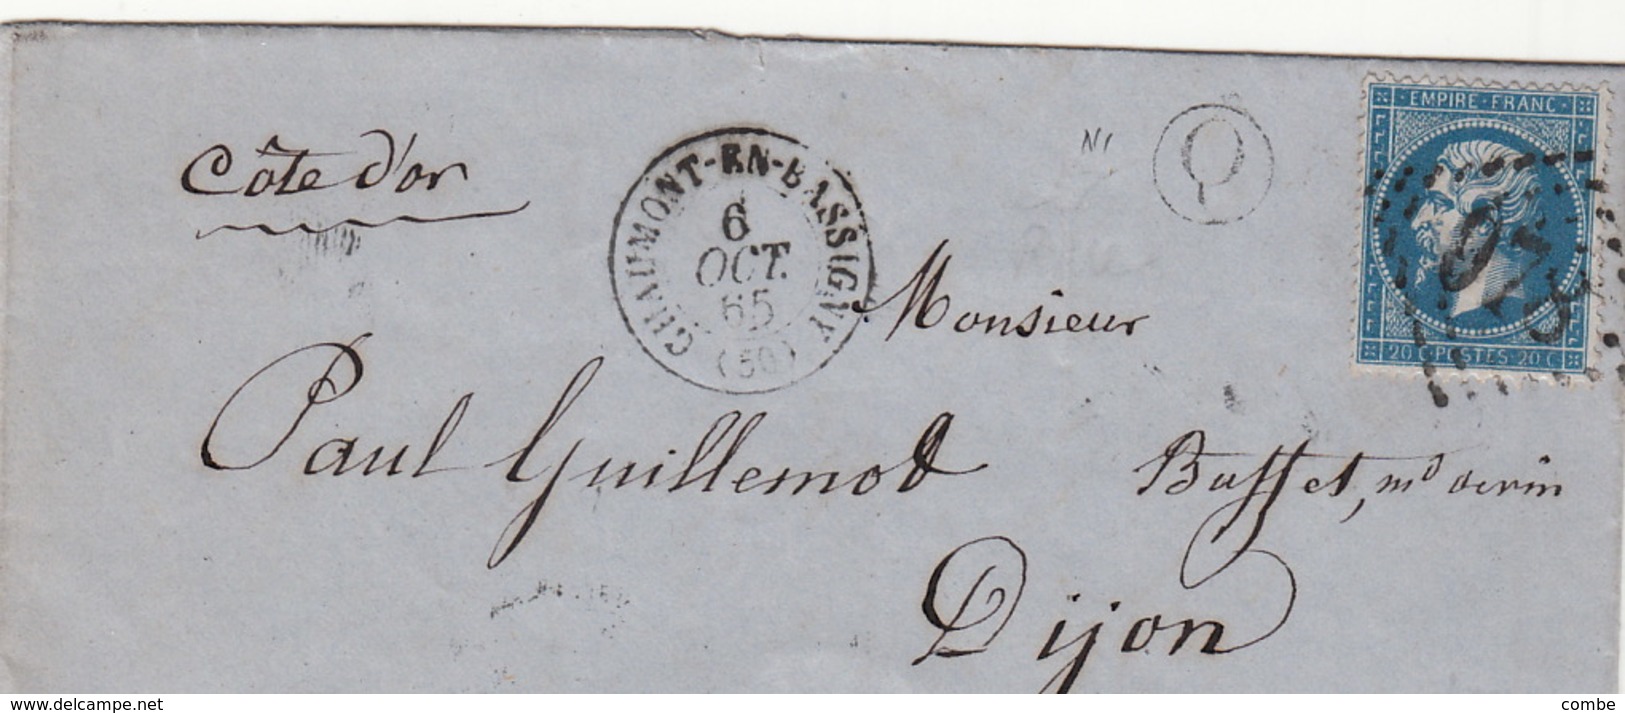 EMPIRE·FRANC·
Côte d'or
CHAUMONT-EN-BASSIGNY
6
OCT.
65
(50)
N1
Q
20 C·POSTES·20 C
Monsieur
Paul Guillemot
Buffet, md
Dijon
www.delcampe.net
combe